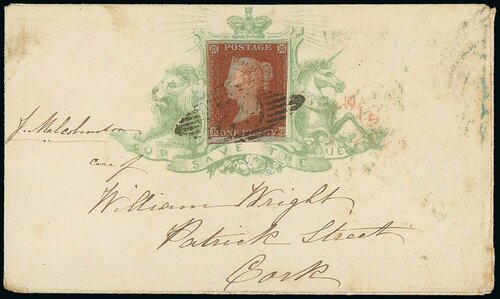 POSTAGE
B ONE PENNY G
GOD SAVE THE QUEEN
J. Malcolmson
care of
William Wright
Patrick Street
Cork